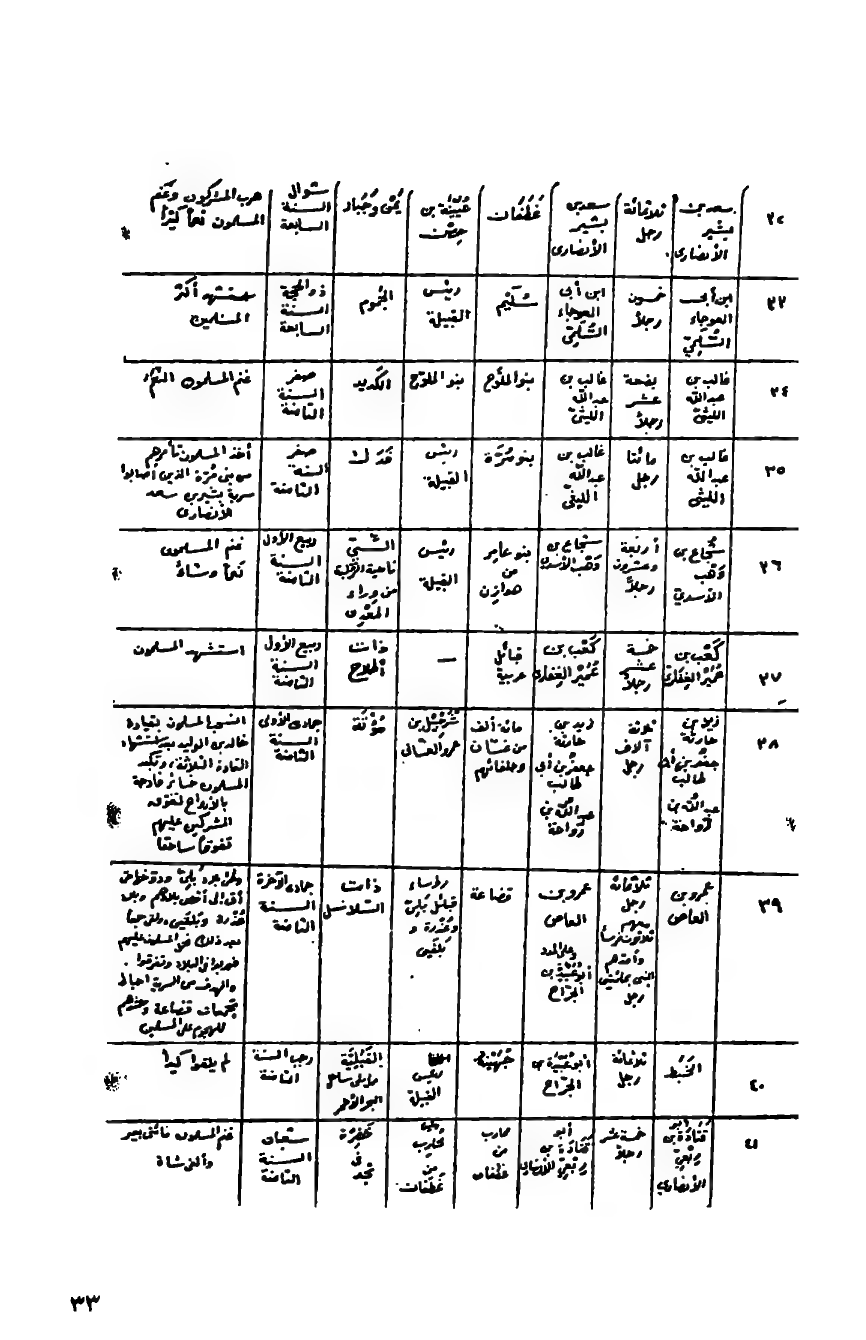 ٣٢ سعد بن بشير الأنصاري ثلاثمائة رجل سعد بن بشير الأنصاري غَطَفان عُيَيْنَة بن حِصْن يُمْن وجُبَار شوال السنة السابعة هرب المشركون وغنم المسلمون نعماً كثيراً
٣٣ ابن أبي العوجاء السُّلَمِيّ خمسين رجلاً ابن أبي العوجاء السُّلَمِيّ سُلَيْم رئيس القبيلة الجُموم ذو الحجة السنة السابعة استشهد أكثر المسلمين
٣٤ غالب بن عبدالله الليثيّ بضعة عشر رجلاً غالب بن عبدالله الليثيّ بنو المُلَوَّح بنو الملوّح الكَديد صفر السنة الثامنة غنم المسلمون النَّعَم
٣٥ غالب بن عبدالله الليثي مائتا رجل غالب بن عبدالله الليثي بنو مُرَّة رئيس القبيلة فَدَك صفر السنة الثامنة أخذ المسلمون ثأرهم من بني مُرّة الذين أصابوا سرية بشير بن سعد الأنصاري
٣٦ شُجاع بن وَهْب الأسديّ أربعة وعشرون رجلاً شجاع بن وَهْب الأسدي بنو عامر من هوازن رئيس القبيلة السِّيّ ناحية الرُّكبة من وراء المعْدِن ربيع الأول السنة الثامنة غنم المسلمون نَعَماً وشاءً
٣٧ كَعْب بن عُمَيْر الغِفَاري خمسة عشر رجلاً كَعْب بن عُمَيْر الغِفاري قبائل عربية — ذات أطلاح ربيع الأول السنة الثامنة استشهد المسلمون
٣٨ زيد بن حارثة جعفر بن أبي طالب عبدالله بن رَواحة ثلاثة آلاف رجل زيد بن حارثة جعفر بن أبي طالب عبدالله بن رواحة مائة ألف من غسّان وحلفائهم شُرَحْبِيْل بن عمرو الغسّاني مُؤْتَة جمادى الأولى السنة الثامنة انسحب المسلمون بقيادة خالد بن الوليد بعد استشهاد القادة الثلاثة، وتكبد المسلمون خسائر فادحة بالأرواح لتفوق المشركين عليهم تفوقاً ساحقاً
٣٩ عمرو بن العاص ثلاثمائة رجل منهم ثلاثون فرساً وأمدهم النبي بمائتي رجل عمرو بن العاص وعلى المدد أبو عُبَيْدة بن الجرّاح قضاعة رؤساء قبائل بَلِيّ وعُذْرة و بَلْقَيْن ذات السَّلاسل جمادى الآخرة السنة الثامنة
٤٠ الخَبَط ثلاثمائة رجل أبو عُبَيْدة بن الجرّاح جُهَيْنة رئيس القبيلة القَبَلِيَّة مما يلي ساحل البحر الأحمر رجب السنة الثامنة لم يلقوا كيداً
٤١ أبو قتادة بن رِبْعِيّ الأنصاري خمسة عشر رجلاً أبو قَتادة بن رِبْعِيّ الأنصاري محارب من غطفان محارب من غَطَفان خَضِرَة في نجد شعبان السنة الثامنة غنم المسلمون مائتي بعير وألفي شاة
٣٣